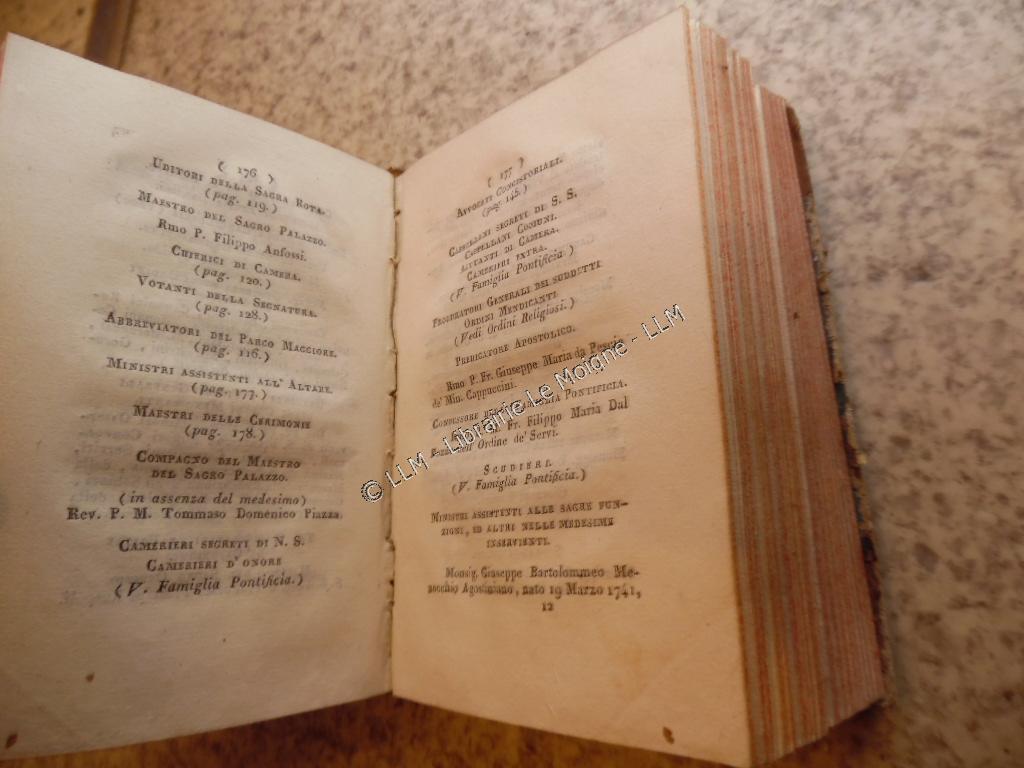 ( 176 )
Uditori della Sagra Rota.
(pag. 119.)
Maestro del Sagro Palazzo.
Rmo P. Filippo Anfossi.
Chierici di Camera.
(pag. 120.)
Votanti della Segnatura.
(pag. 128.)
Abbreviatori del Parco Maggiore.
(pag. 116.)
Ministri assistenti all' Altare.
(pag. 177.)
Maestri delle Cerimonie
(pag. 178.)
Compagno del Maestro
del Sagro Palazzo.
(in assenza del medesimo)
Rev. P. M. Tommaso Domenico Piazza.
Camerieri segreti di N. S.
Camerieri d'onore
(V. Famiglia Pontificia.)
( 177 )
Avvocati Concistoriali.
(pag. 145.)
Cappellani segreti di S. S.
Cappellani Comuni.
Aiutanti di Camera.
Camerieri extra.
(V. Famiglia Pontificia)
Procuratori Generali dei suddetti
Ordini Mendicanti
(Vedi Ordini Religiosi.)
Predicatore Apostolico.
Rmo P. Fr. Giuseppe Maria da
de' Min. Cappuccini.
Confessore Pontificia.
Fr. Filippo Maria Dal
dell'Ordine de' Servi.
Scudieri.
(V. Famiglia Pontificia.)
Ministri assistenti alle sagre fun-
zioni, ed altri nelle medesime
inservienti.
Monsig. Giuseppe Bartolommeo Me-
nocchio Agostiniano, nato 19 Marzo 1741,
12
© LLM - Librairie Le Moigne - LLM